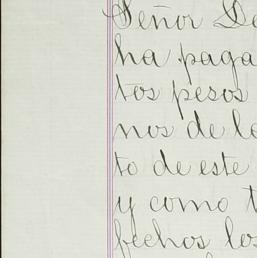 Señor De
ha paga
tos pesos
nos de lo
to de este
y como t
fechos los